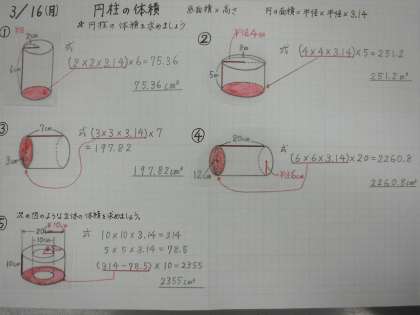 3/16(月) 円柱の体積 底面積×高さ 円の面積=半径×半径×3.14
☆円柱の体積を求めましょう
① 2cm 6cm 式 (2×2×3.14)×6=75.36
75.36cm³
② 半径4cm 8cm 5m 式 (4×4×3.14)×5=251.2
251.2m³
③ 7cm 3cm 式 (3×3×3.14)×7
=197.82
197.82cm³
④ 20cm 12cm 半径6cm 式 (6×6×3.14)×20=2260.8
2260.8cm³
⑤ 次の図のような立体の体積を求めましょう。
20cm 10cm 10cm 式 10×10×3.14=314
5×5×3.14=78.5
(314-78.5)×10=2355
2355cm³